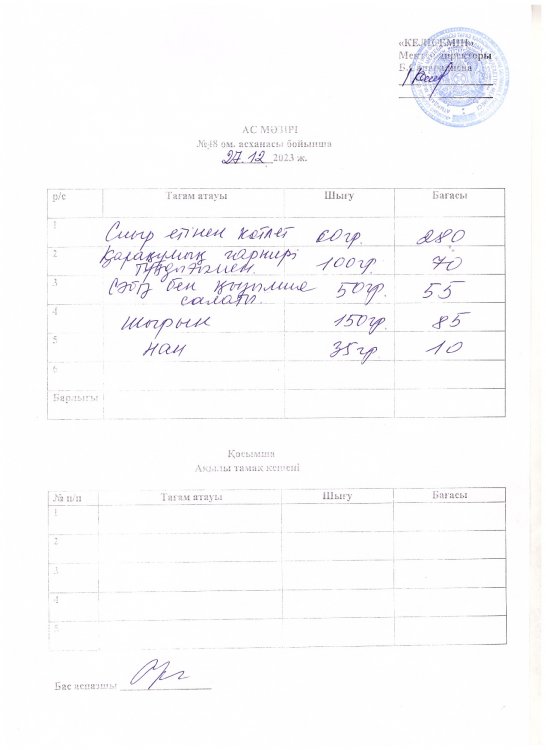 «КЕЛІСЕМІН»
Мектеп директоры
АС МӘЗІРІ
№48 ом. асханасы бойынша
27.12 2023 ж.
р/с Тағам атауы Шығу Бағасы
1 Сиыр етінен котлет 60гр. 280
2 Қарақұмық гарнирі 100гр. 70
тұздығымен.
3 Сәбіз бен қызылша 50гр. 55
салаты.
4 Шырын 150гр. 85
5 Нан 35гр. 10
6
Барлығы
Қосымша
Ақылы тамақ кешені
№ п/п Тағам атауы Шығу Бағасы
1
2
3
4
5
Бас аспазшы